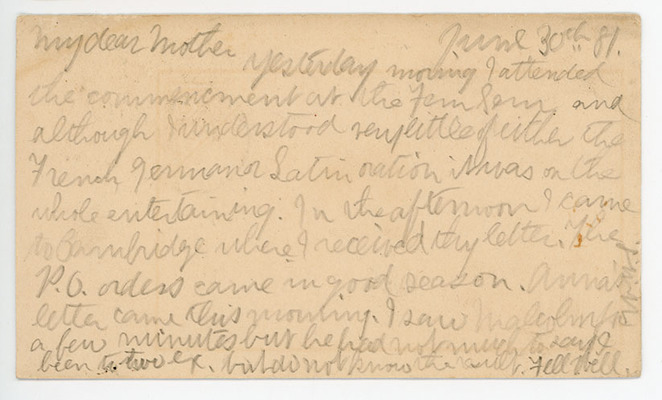 My dear Mother June 30th 81.
Yesterday moring I attended
the commencment at the Fem Sem and
although I understood very little of either the
French German or Latin oration it was on the
whole entertaining. In the afternoon I came
to Cambridge where I received thy letter. The
P.O. orders came in good season. Anna's
letter came this morning. I saw Malcolm
a few minutes but he had not much to say I
been to two ex. but do not know the result. Fell well.